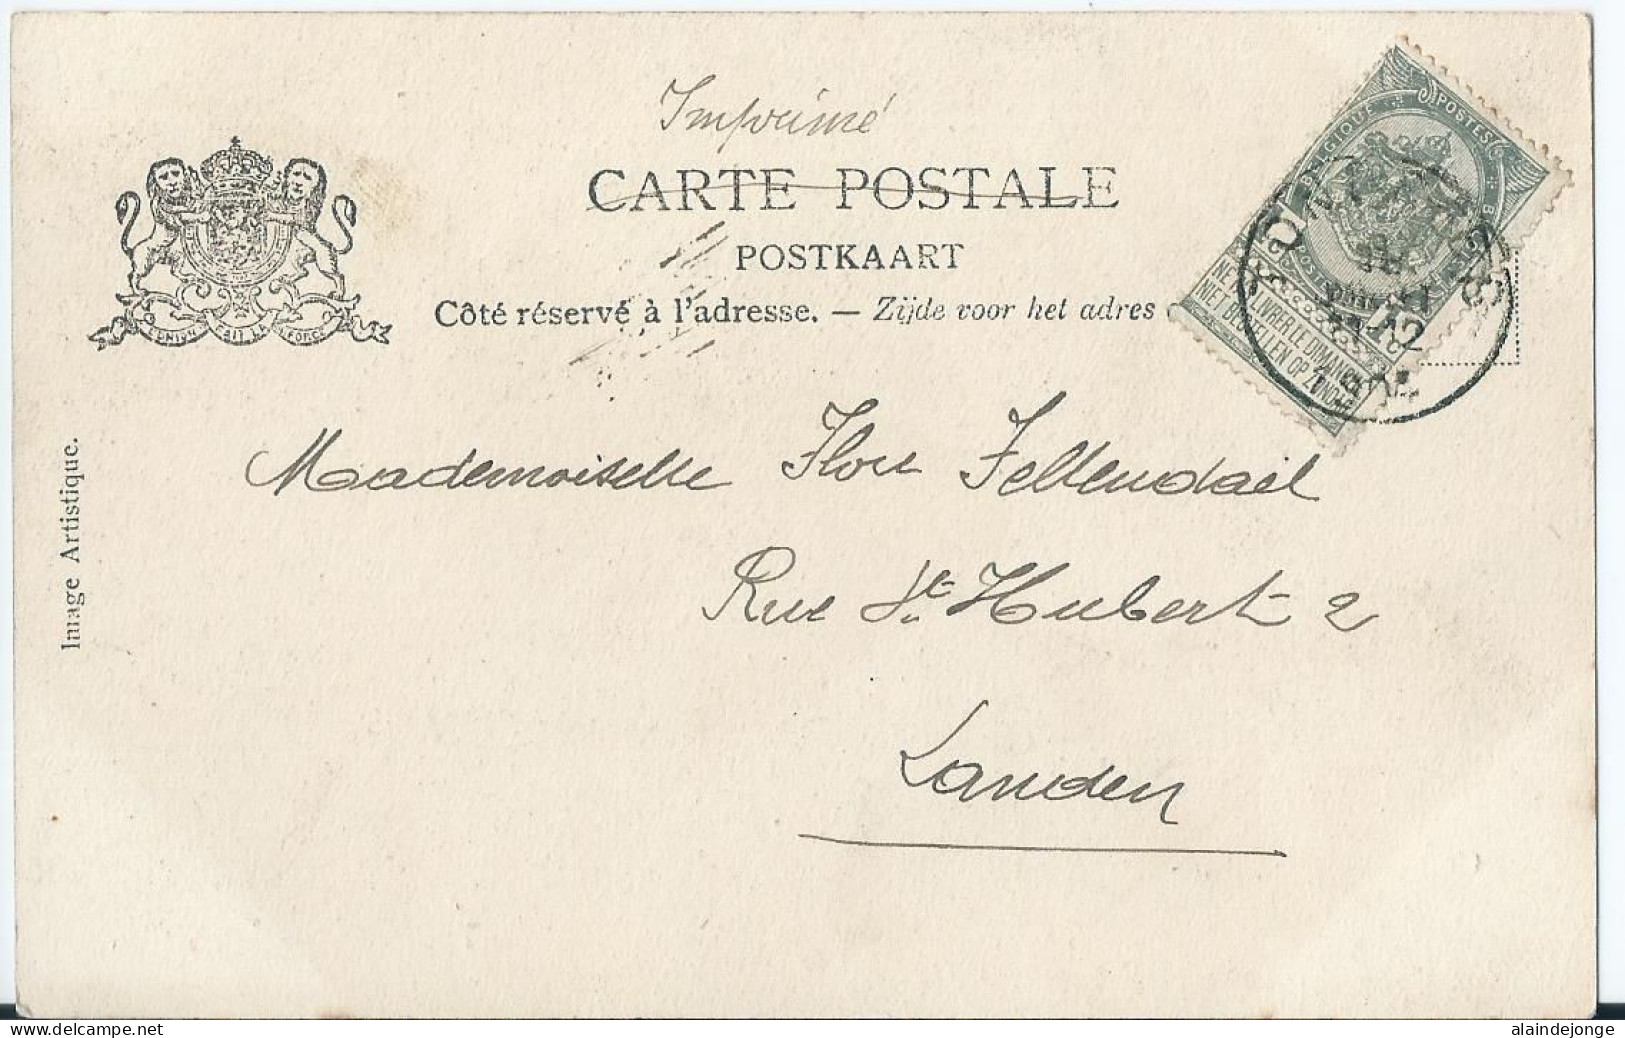 Imprimé
CARTE POSTALE
POSTKAART
Côté réservé à l'adresse. — Zijde voor het adres
L'UNION FAIT LA FORCE
BELGIQUE POSTES
NE PAS LIVRER LE DIMANCHE
NIET BESTELLEN OP ZONDAG
Mademoiselle Flore Fellendael
Rue St Hubert 2
Landen
Image Artistique.
delcampe.net
alaindejonge